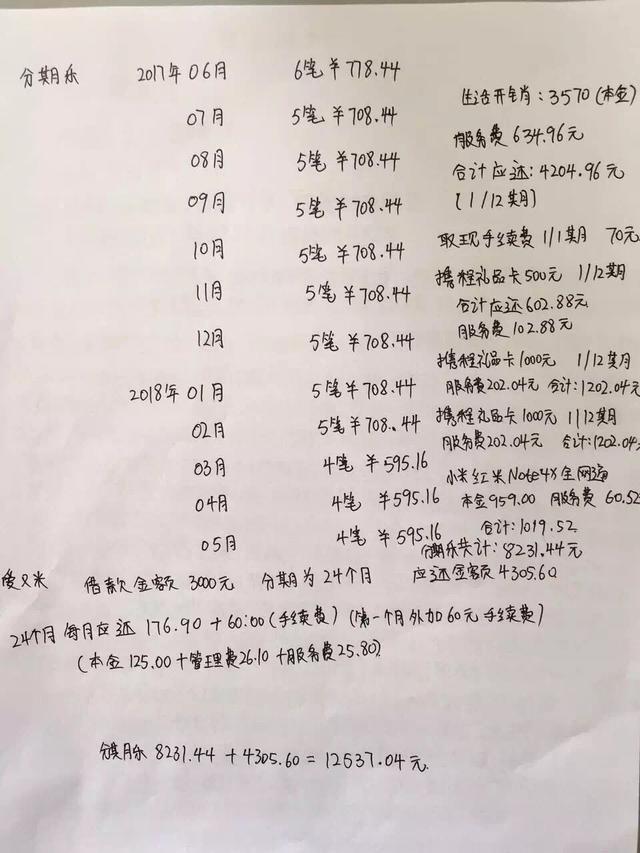 分期乐 2017年06月 6笔 ¥778.44
07月 5笔 ¥708.44
08月 5笔 ¥708.44
09月 5笔 ¥708.44
10月 5笔 ¥708.44
11月 5笔 ¥708.44
12月 5笔 ¥708.44
2018年01月 5笔 ¥708.44
02月 5笔 ¥708.44
03月 4笔 ¥595.16
04月 4笔 ¥595.16
05月 4笔 ¥595.16
生活开销:3570(本金)
服务费634.96元
合计应还:4204.96元
(1/12期)
取现手续费 1/1期 70元
携程礼品卡500元 1/12期
合计应还602.88元
服务费102.88元
携程礼品卡1000元 1/12期
服务费202.04元 合计:1202.04元
携程礼品卡1000元 1/12期
服务费202.04元 合计:1202.04元
小米红米Note4X全网通
本金959.00 服务费60.52
合计:1019.52
分期乐共计:8231.44元
爱又米 借款金额3000元 分期为24个月 应还金额4305.60
24个月每月应还 176.90+60.00(手续费)(第一个月外加60元手续费)
(本金125.00+管理费26.10+服务费25.80)
分期乐8231.44+4305.60=12537.04元